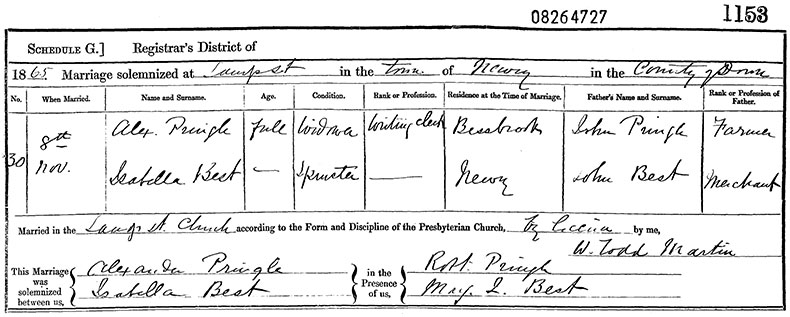 08264727 1153
SCHEDULE G.] Registrar's District of
1865 Marriage solemnized at Sandys St in the town of Newry in the County of Down
No. When Married. Name and Surname. Age. Condition. Rank or Profession. Residence at the Time of Marriage. Father's Name and Surname. Rank or Profession of Father.
30 8th Nov. Alex. Pringle full Widower Writing clerk Bessbrook John Pringle Farmer
Isabella Best — Spinster — Newry John Best Merchant
Married in the Sandys St. Church according to the Form and Discipline of the Presbyterian Church, by license by me,
W. Todd Martin
This Marriage was solemnized between us, { Alexander Pringle } in the Presence of us, { Robt. Pringle
Isabella Best Best